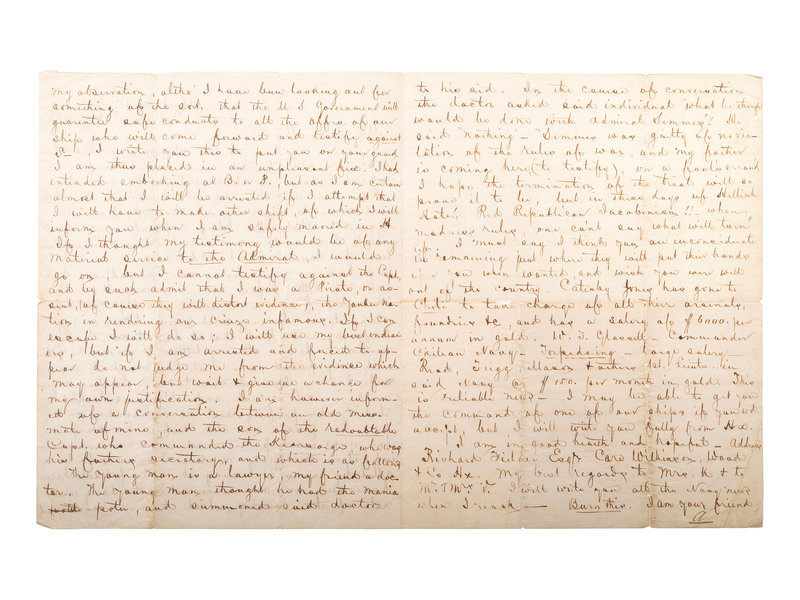 my observation, altho' I have been looking out for
something of the sort. that the U S. Government will
guarantee safe conducts to all the offrs. of our
ship who will come forward and testify against
I write you this to put you on your guard
I am thus placed in an unpleasant fix. I had
intended embarking at B. or P., but as I am certain
almost that I will be arrested if I attempt that
I will have to make other shift, of which I will
inform you when I am safely moored in H
If I thought my testimony would be of any
material service to the Admiral, I would
go on, but I cannot testify against the Capt,
and by such admit that I was a Pirate, or as-
sist, of course they will distort evidence, the Yankee na-
tion in rendering our Cruise infamous. If I can
escape I will do so; I will use my best endeav
ers, but if I am arrested and forced to ap-
pear do not judge me from the evidence which
may appear, but wait & give me a chance for
my own justification. I am however inform-
ed of a conversation between an old mess-
mate of mine and the son of the redoubtable
Capt. who commanded the Kearsarge, who was
his fathers secretary, and which is as follows
The young man is a lawyer, my friend a doc-
tor. The young man thought he had the mania
potu, and summoned said doctor
to his aid. In the course of conversation
the doctor asked said individual "what he thought
would be done with Admiral Semmes?" He
said "nothing" - "Semmes was guilty of no vio-
lation of the rules of war, and my father
is coming here (to testify), on a fool's errand
I hope the termination of the trial will so
prove it to be, but in these days of Hellish
Hate! Red Republican Jacobinism!! when
madness rules, one cant say what will "turn
up". I must say I think you are inconsiderate
in remaining just where they will put their hands
upon you when wanted, and wish you were well
out of the country. Catesby Jones has gone to
Chili to take charge of all their arsenals,
foundries &c, and has a salary of $6000. per
annum in gold. W. F. Glassell - Commander
Chilian Navy - Torpedoing - large salary -
Read, Trigg & others 1st Lieuts. in
said Navy @ $100. per month in gold. This
is reliable news - I may be able to get you
the command of one of our ships if you will
accept, but I will write you fully from Hx.
I am in good health and hopeful - Address
Richard Esqr. Care Wilkinson, Wood
& Co Hx. My best regards to Mrs. K & to
Mr. & Mrs. I will write you all the Navy news
when I reach - Burn this. I am your friend